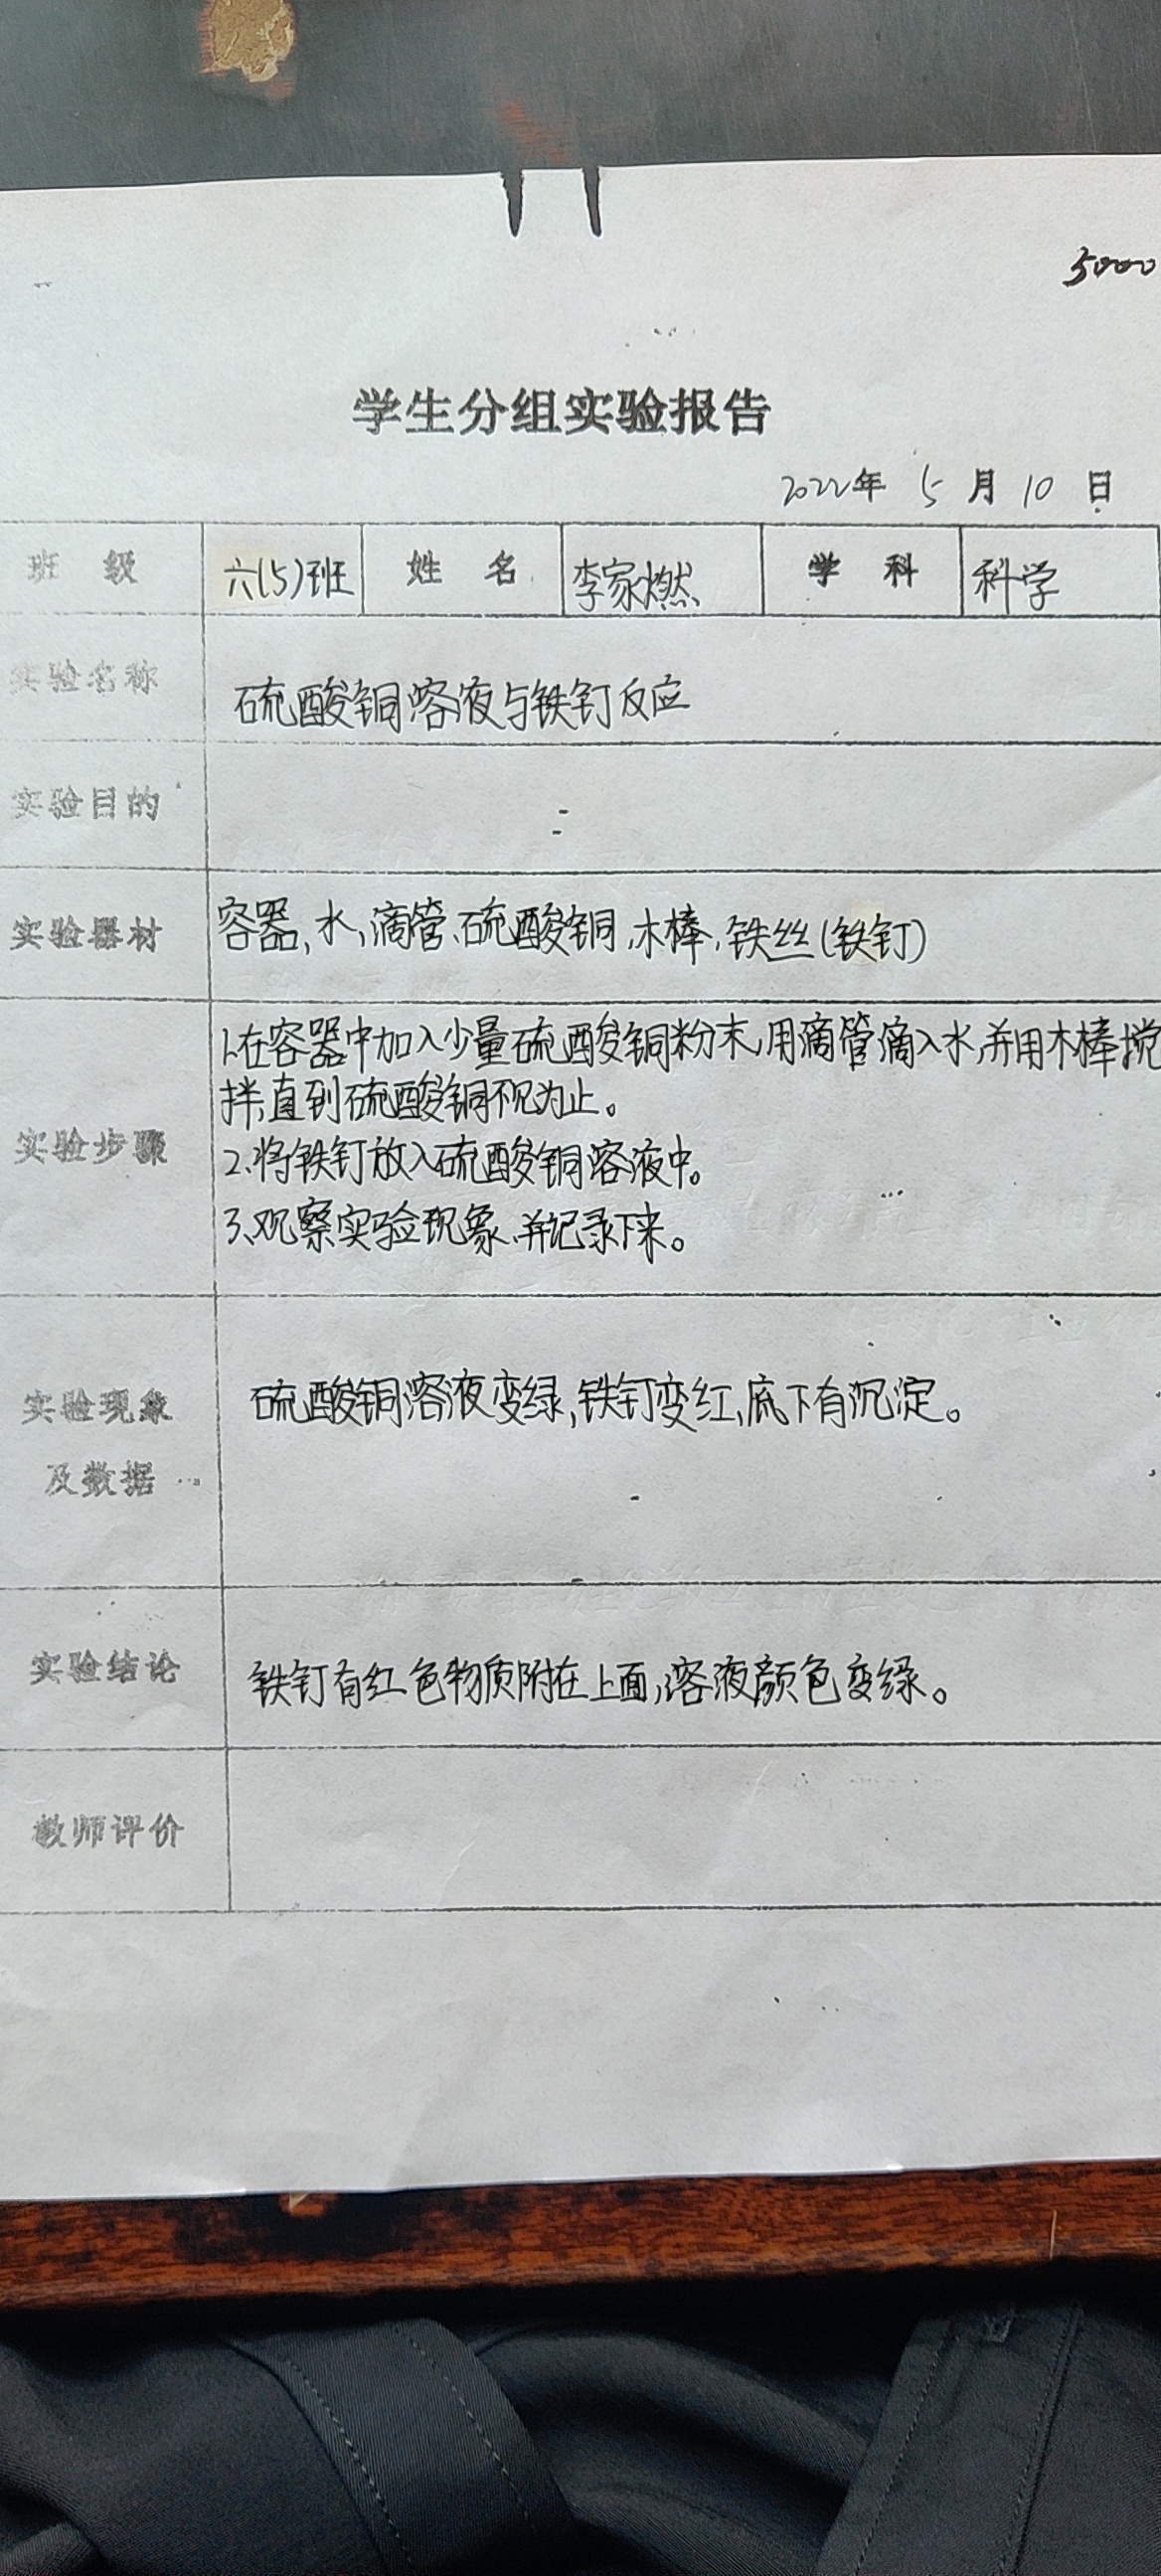 5000
学生分组实验报告
2022年 5 月 10 日
班 级 六(5)班 姓 名 李家燃 学 科 科学
实验名称 硫酸铜溶液与铁钉反应
实验目的
实验器材 容器,水,滴管、硫酸铜,木棒,铁丝(铁钉)
实验步骤
1.在容器中加入少量硫酸铜粉末,用滴管滴入水,并用木棒搅
拌,直到硫酸铜不见为止。
2、将铁钉放入硫酸铜溶液中。
3、观察实验现象、并记录下来。
实验现象
及数据
硫酸铜溶液变绿,铁钉变红,底下有沉淀。
实验结论 铁钉有红色物质附在上面,溶液颜色变绿。
教师评价